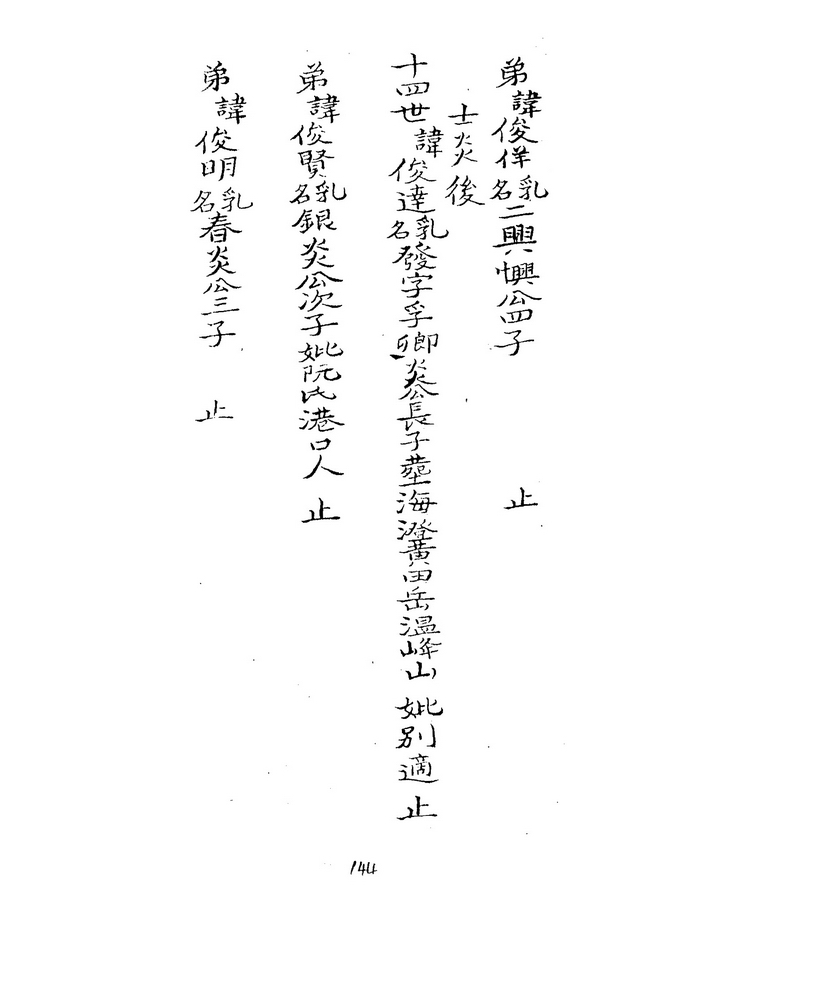 弟諱俊佯乳名二興㦡公四子 止
士炎後
十四世諱俊達乳名發字孚卿炎公長子葬海澄黃田岳溫峰山妣別適止
弟諱俊賢乳名銀炎公次子妣阮氏港口人止
弟諱俊明乳名春炎公三子 止
144